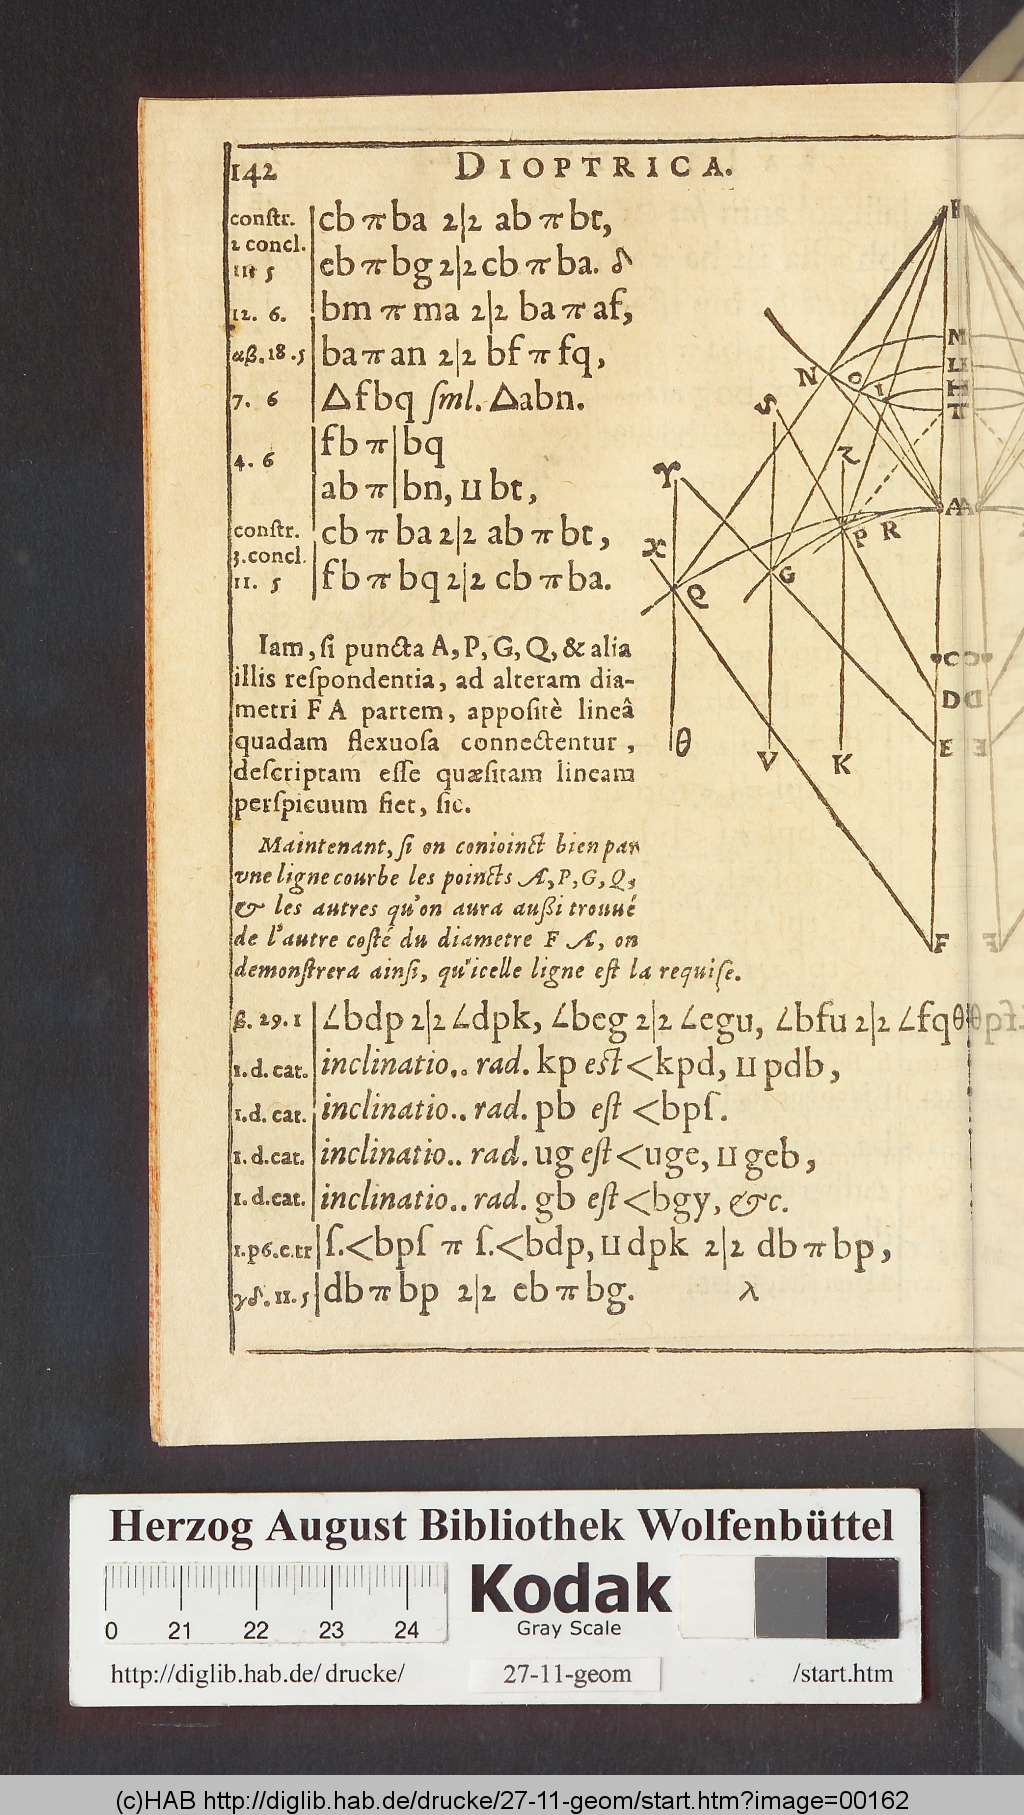 142 DIOPTRICA.
conſtr. cb π ba 2|2 ab π bt,
2 concl.
111 5 eb π bg 2|2 cb π ba. δ
12. 6. bm π ma 2|2 ba π af,
αβ.18.5 ba π an 2|2 bf π fq,
7. 6 △fbq ſml. △abn.
fb π|bq
4. 6
ab π|bn, ⊔ bt,
conſtr. cb π ba 2|2 ab π bt,
3.concl.
11. 5 fb π bq 2|2 cb π ba.
Iam, ſi puncta A, P, G, Q, & alia
illis reſpondentia, ad alteram dia-
metri F A partem, appoſitè lineâ
quadam flexuoſa connectentur,
deſcriptam eſſe quæſitam lineam
perſpicuum fiet, ſic.
Maintenant, ſi on conioinct bien par
vne ligne courbe les poincts A, P, G, Q,
& les autres qu'on aura außi trouué
de l'autre coſté du diametre F A, on
demonſtrera ainſi, qu'icelle ligne eſt la requiſe.
β. 29. 1 ∠bdp 2|2 ∠dpk, ∠beg 2|2 ∠egu, ∠bfu 2|2 ∠fqθ
1. d. cat. inclinatio.. rad. kp eſt <kpd, ⊔ pdb,
1. d. cat. inclinatio.. rad. pb eſt <bpſ.
1. d. cat. inclinatio.. rad. ug eſt <uge, ⊔ geb,
1. d. cat. inclinatio.. rad. gb eſt <bgy, &c.
1. p6. e. tr ſ.<bpſ π ſ.<bdp, ⊔ dpk 2|2 db π bp,
γδ. 11. 5 db π bp 2|2 eb π bg. λ
M
L
H
N O I
T
S
Z
Y
A
P R
X
G
Q
C
D
θ
E
V K
F
Herzog August Bibliothek Wolfenbüttel
Kodak
Gray Scale
0 21 22 23 24
http://diglib.hab.de/drucke/ 27-11-geom /start.htm
(c)HAB http://diglib.hab.de/drucke/27-11-geom/start.htm?image=00162